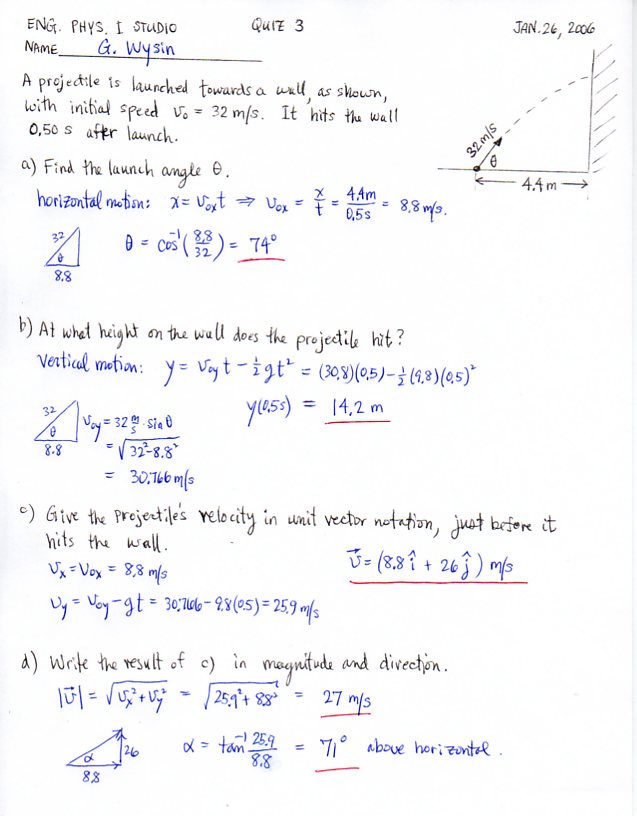 ENG. PHYS. I STUDIO QUIZ 3 JAN. 26, 2006
NAME G. Wysin
A projectile is launched towards a wall, as shown,
with initial speed v₀ = 32 m/s. It hits the wall
0,50 s after launch.
32 m/s
θ
4.4 m
a) Find the launch angle θ.
horizontal motion: x = v₀ₓt ⇒ v₀ₓ = x/t = 4.4m/0,5s = 8,8 m/s.
32
θ
8.8
θ = cos⁻¹(8,8/32) = 74°
b) At what height on the wall does the projectile hit?
Vertical motion: y = v₀y t − ½gt² = (30,8)(0,5) − ½(9,8)(0,5)²
y(0,5s) = 14,2 m
32
θ
8.8
v₀y = 32 m/s · sin θ
= √(32² − 8.8²)
= 30.766 m/s
c) Give the projectile's velocity in unit vector notation, just before it
hits the wall.
vₓ = v₀ₓ = 8,8 m/s
v⃗ = (8.8 î + 26 ĵ) m/s
vy = v₀y − gt = 30.766 − 9.8(0.5) = 25.9 m/s
d) Write the result of c) in magnitude and direction.
|v⃗| = √(vₓ² + vy²) = √(25.9² + 8.8²) = 27 m/s
α
26
8.8
α = tan⁻¹ 25.9/8.8 = 71° above horizontal.